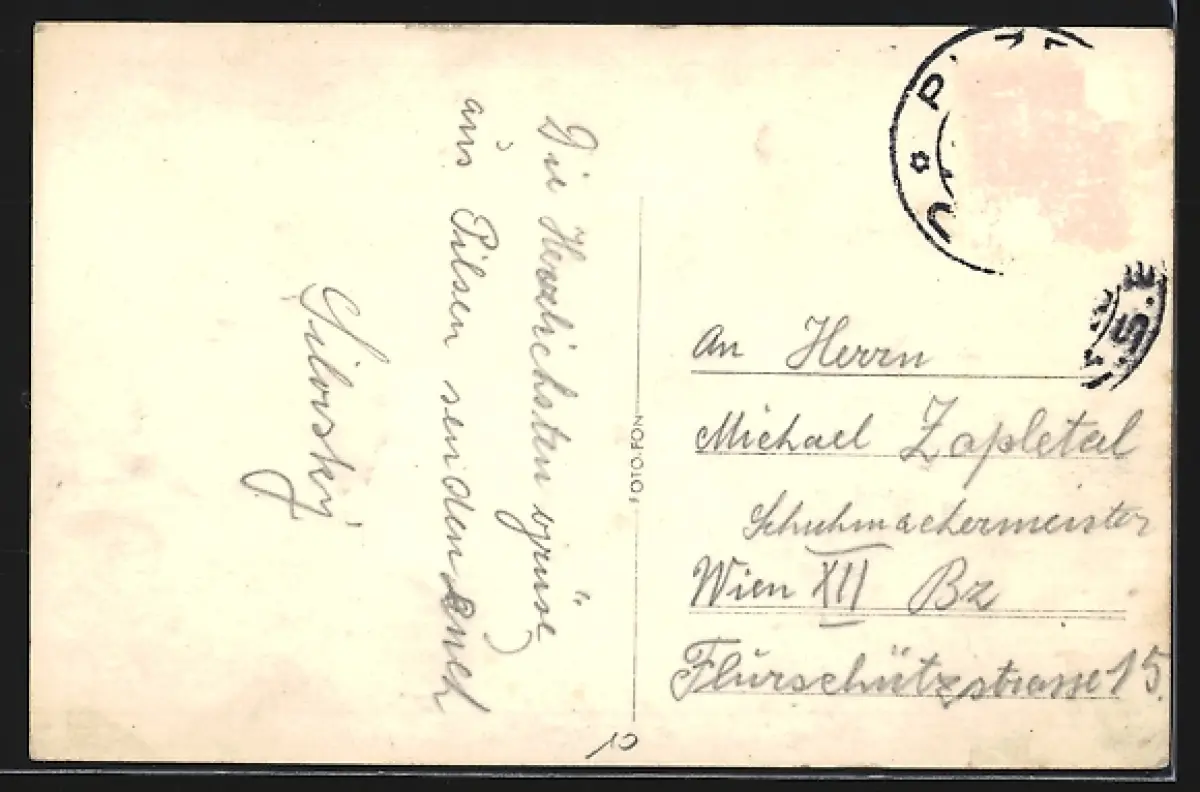 Die Herzlichsten grüse
aus Pilsen senden Euch
An Herrn
Michael Zapletal
Schuhmachermeister
Wien XII Bz
Flurschützstrasse 15.
FOTO-FON
10